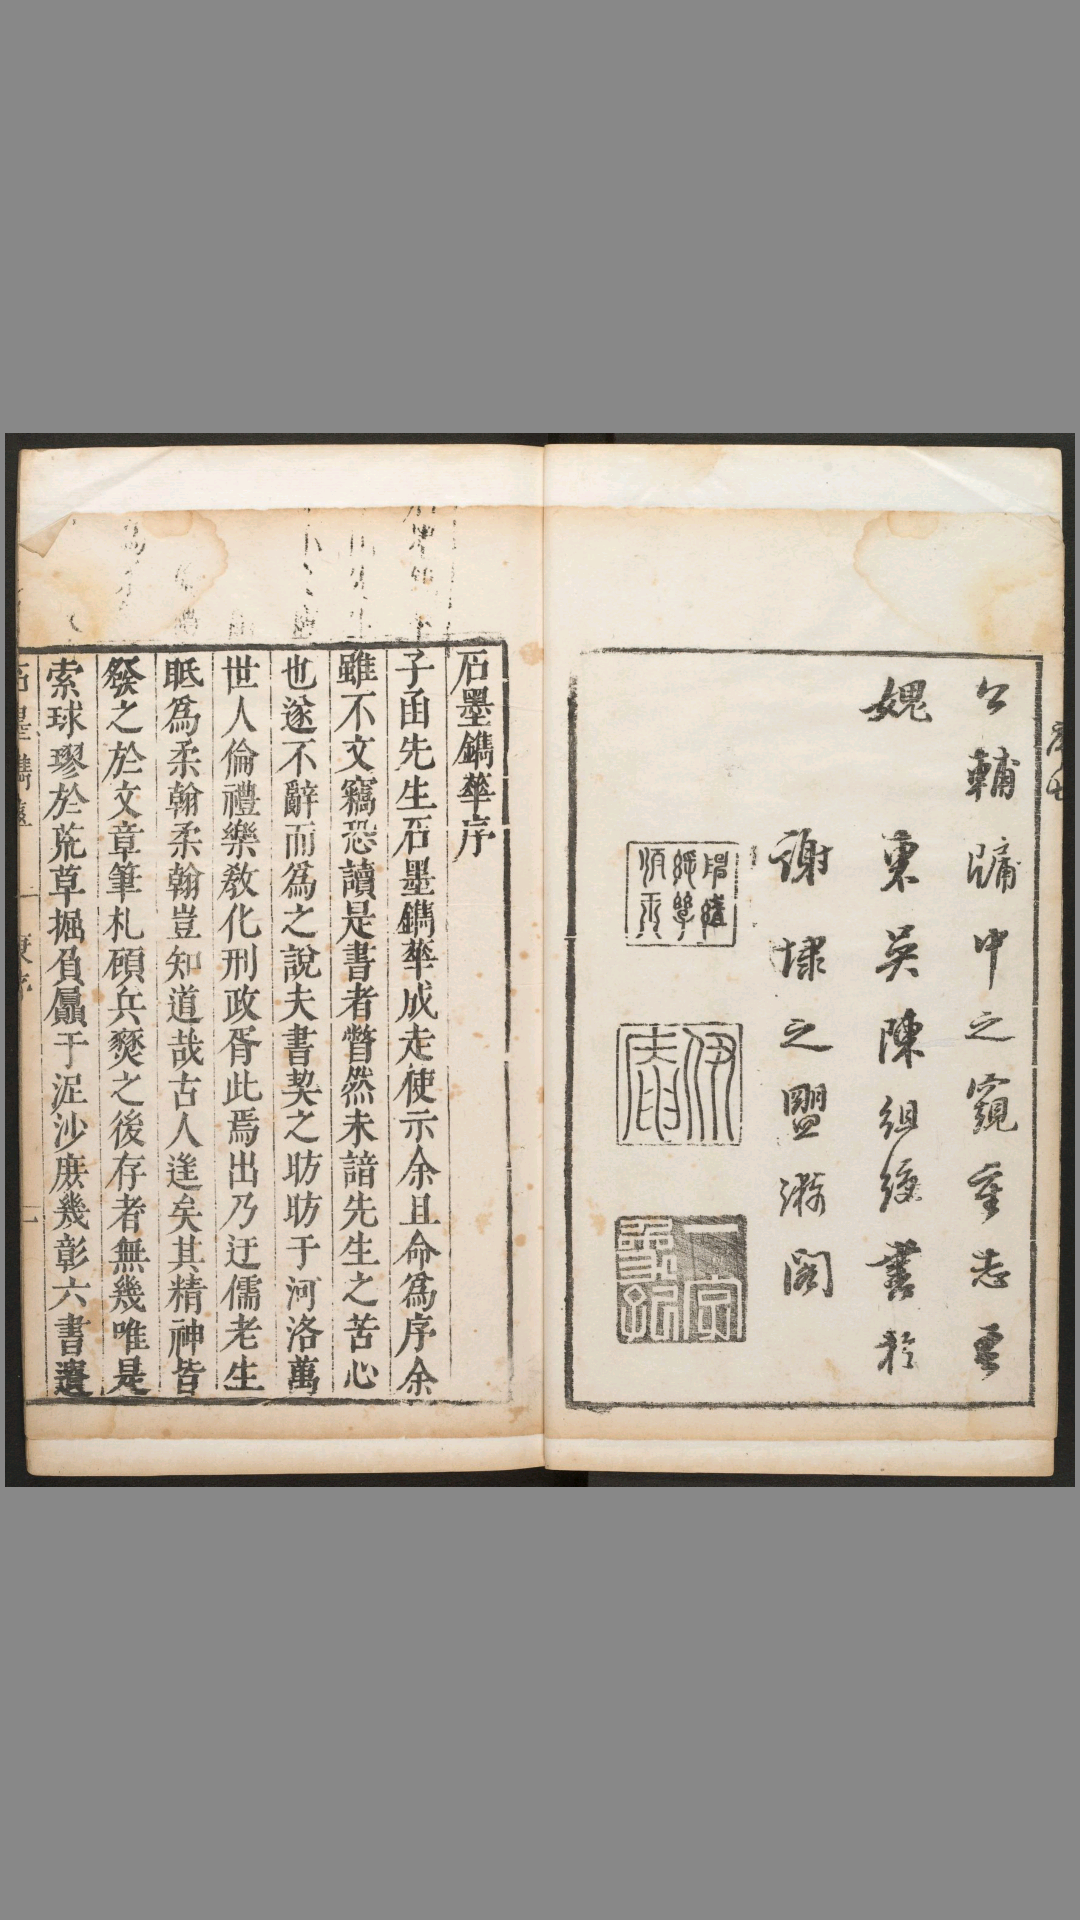 公輔牖中之窺童志多
媿
東吳陳組綬書於
謝埭之盟漪閣
石墨鐫華序
子函先生石墨鐫華成走使示余且命爲序余
雖不文竊恐讀是書者瞥然未諳先生之苦心
也遂不辭而爲之說夫書契之昉昉于河洛萬
世人倫禮樂敎化刑政胥此焉出乃迂儒老生
眂爲柔翰柔翰豈知道哉古人逢矣其精神皆
發之於文章筆札碩兵燹之後存者無幾唯是
索球璆於荒草掘負屭于泥沙庶幾彰六書遺